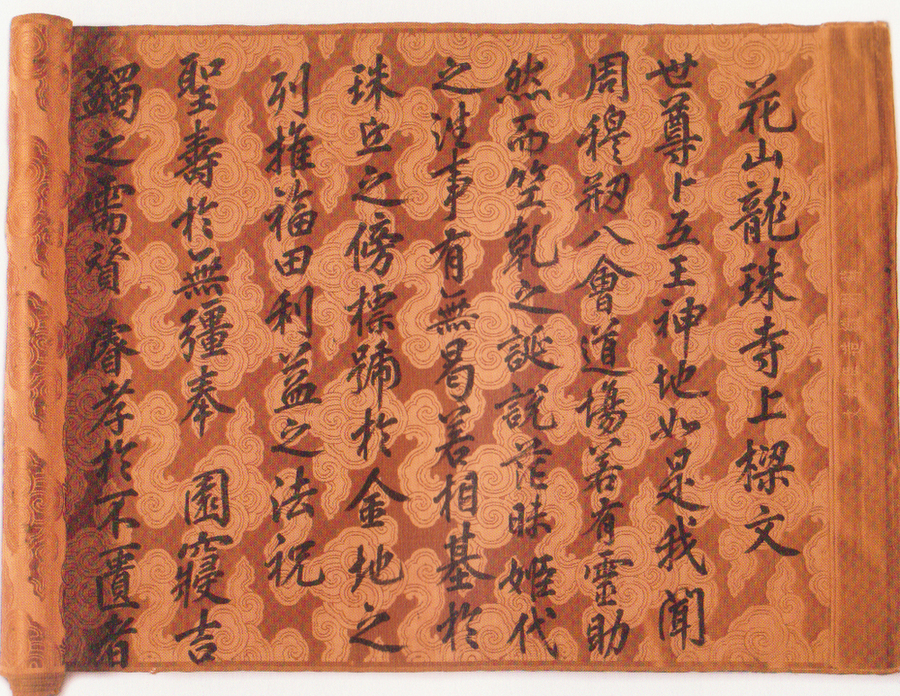 花山龍珠寺上樑文
世尊卜五王神地如是我聞
周穆剏八會道場若有靈助
然而竺乾之誕說茫昧姬代
之往事有無曷若相基於
珠丘之傍標號於金地之
列推福田利益之法祝
聖壽於無彊奉 園寢吉
蠲之需資 睿孝於不匱者